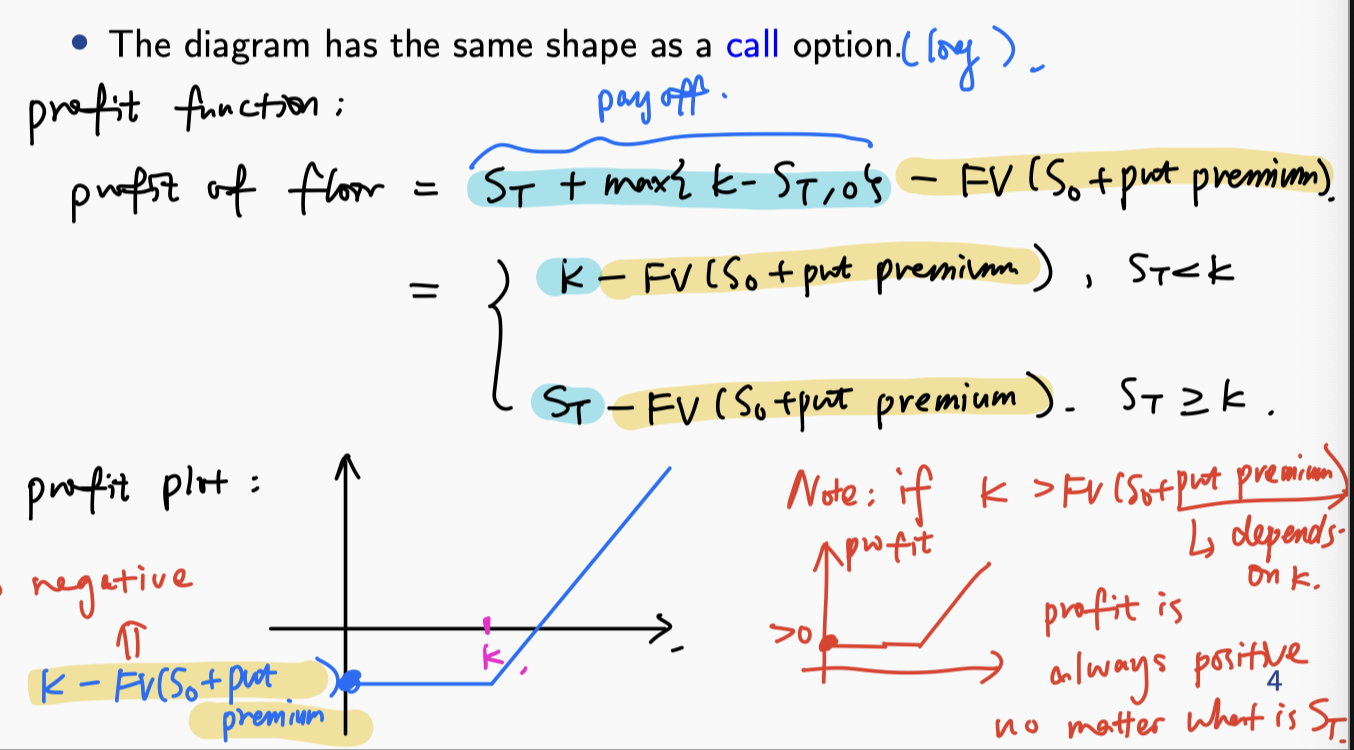 • The diagram has the same shape as a call option. (long).
profit function:
payoff.
profit of floor = S_T + max{k - S_T, 0} - FV(S_0 + put premium).
= { k - FV(S_0 + put premium), S_T < k
S_T - FV(S_0 + put premium). S_T ≥ k.
profit plot:
negative
⇑
k - FV(S_0 + put premium)
k.
Note: if k > FV(S_0 + put premium)
↳ depends on k.
profit
>0
profit is
always positive
no matter what is S_T.
4